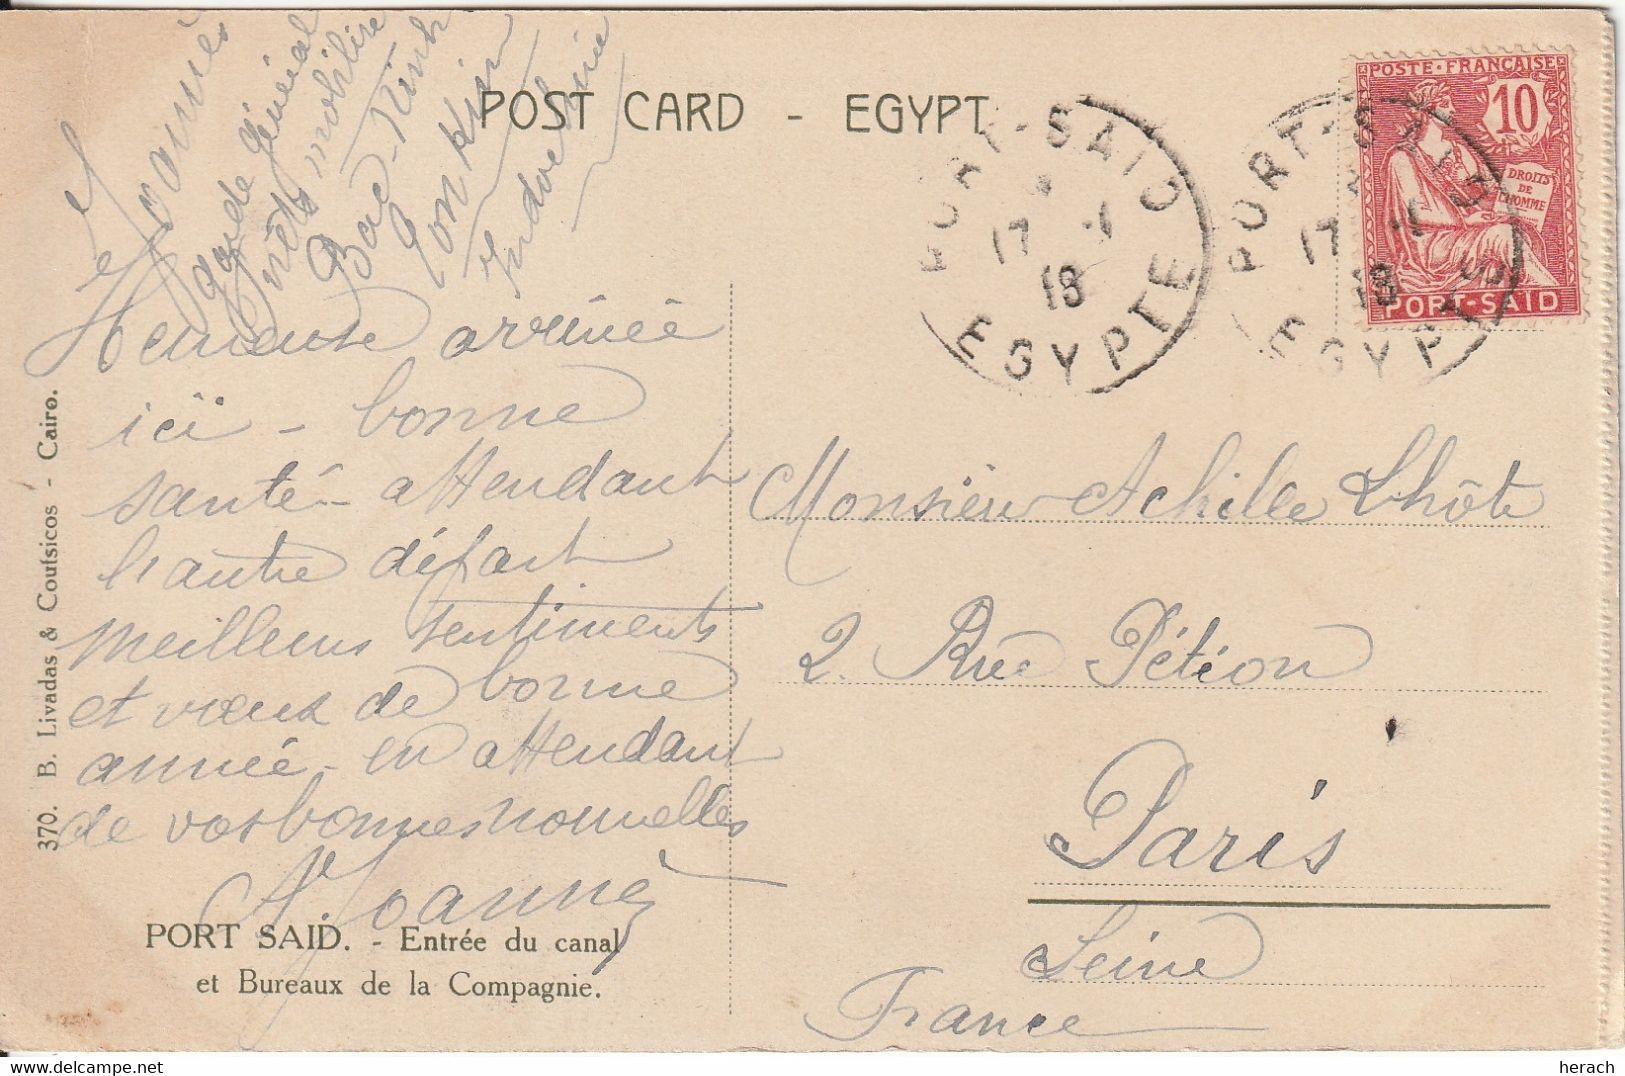 POST CARD - EGYPT
Joannès
garde général
forêts mobilisé
Bac-Ninh
Tonkin
Indochine
Heureuse arrivée
ici - bonne
santé - attendant
l'autre départ
meilleurs sentiments
et vœux de bonne
année - en attendant
de vos bonnes nouvelles
Joannès
PORT SAID. - Entrée du canal
et Bureaux de la Compagnie.
370. B. Livadas & Coutsicos - Cairo.
PORT-SAID
17 -1
18
EGYPTE
PORT-SAID
17 -1
18
EGYPTE
POSTE·FRANÇAISE
10
DROITS
DE
L'HOMME
PORT-SAÏD
Monsieur Achille Lhôte
2. Rue Pétion
Paris
Seine
France
herach